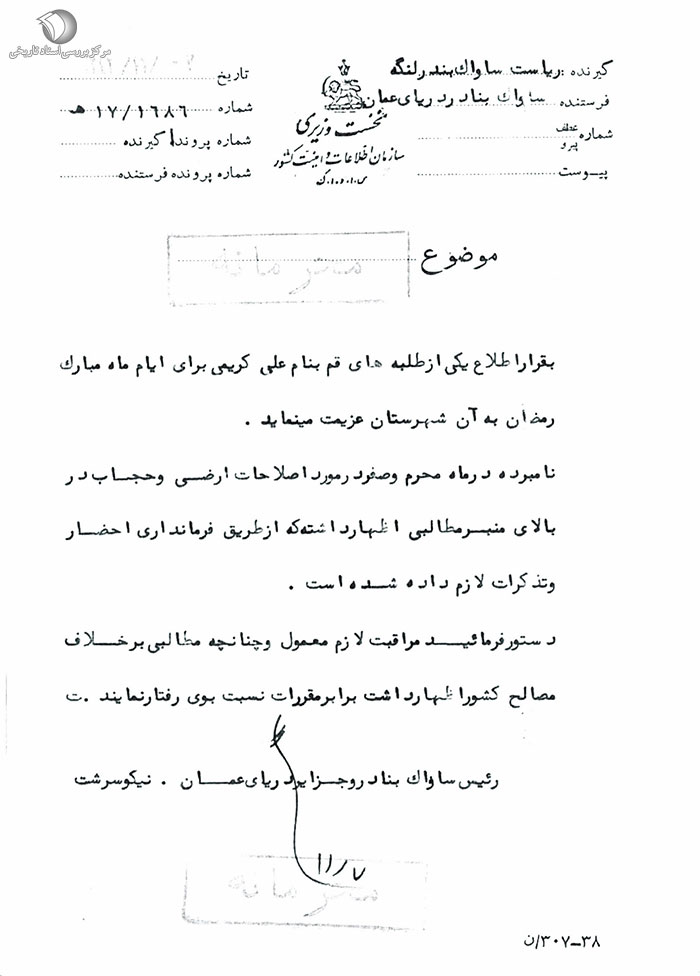 مرکز بررسی اسناد تاریخی
گیرنده : ریاست ساواک بندرلنگه
فرستنده ساواک بنادر دریای عمان
شماره عطف
پیرو
پیوست
نخست وزیری
سازمان اطلاعات و امنیت کشور
س.ا.و.ا.ک
تاریخ
شماره ۱۷/۱۶۸۶ هـ
شماره پرونده گیرنده
شماره پرونده فرستنده
موضوع
محرمانه
بقرار اطلاع یکی از طلبه های قم بنام علی کریمی برای ایام ماه مبارک
رمضان به آن شهرستان عزیمت مینماید .
نامبرده در ماه محرم وصفر در مورد اصلاحات ارضی وحجاب در
بالای منبر مطالبی اظهار داشته که از طریق فرمانداری احضار
وتذکرات لازم داده شده است .
دستور فرمائید مراقبت لازم معمول وچنانچه مطالبی برخلاف
مصالح کشور اظهار داشت برابر مقررات نسبت بوی رفتار نمایند .ت
رئیس ساواک بنادر وجزایر دریای عمان . نیکوسرشت
۱۱/۷
محرمانه
۳۸-۳۰۷/ن